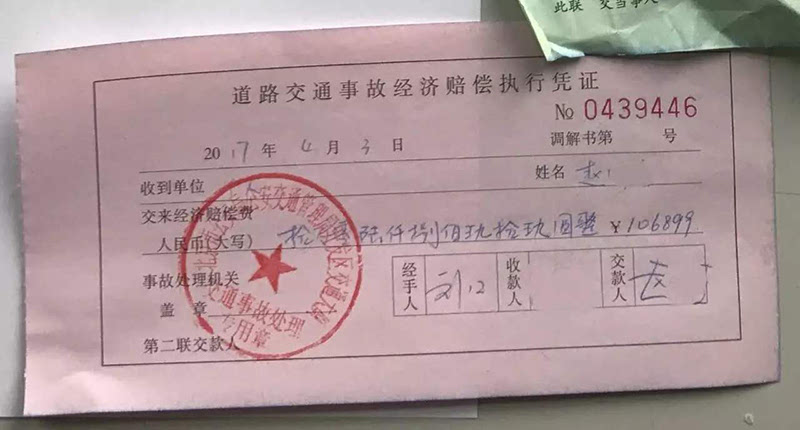 此联 交当事人
道路交通事故经济赔偿执行凭证
No 0439446
2017年4月3日 调解书第 号
收到单位 姓名 赵
交来经济赔偿费
人民币(大写) 拾 陆仟捌佰玖拾玖圆整 ¥106899
事故处理机关
盖章
经手人 刘 收款人 交款人
第二联交款人
公安交通管理局 开发区交通
交通事故处理
专用章